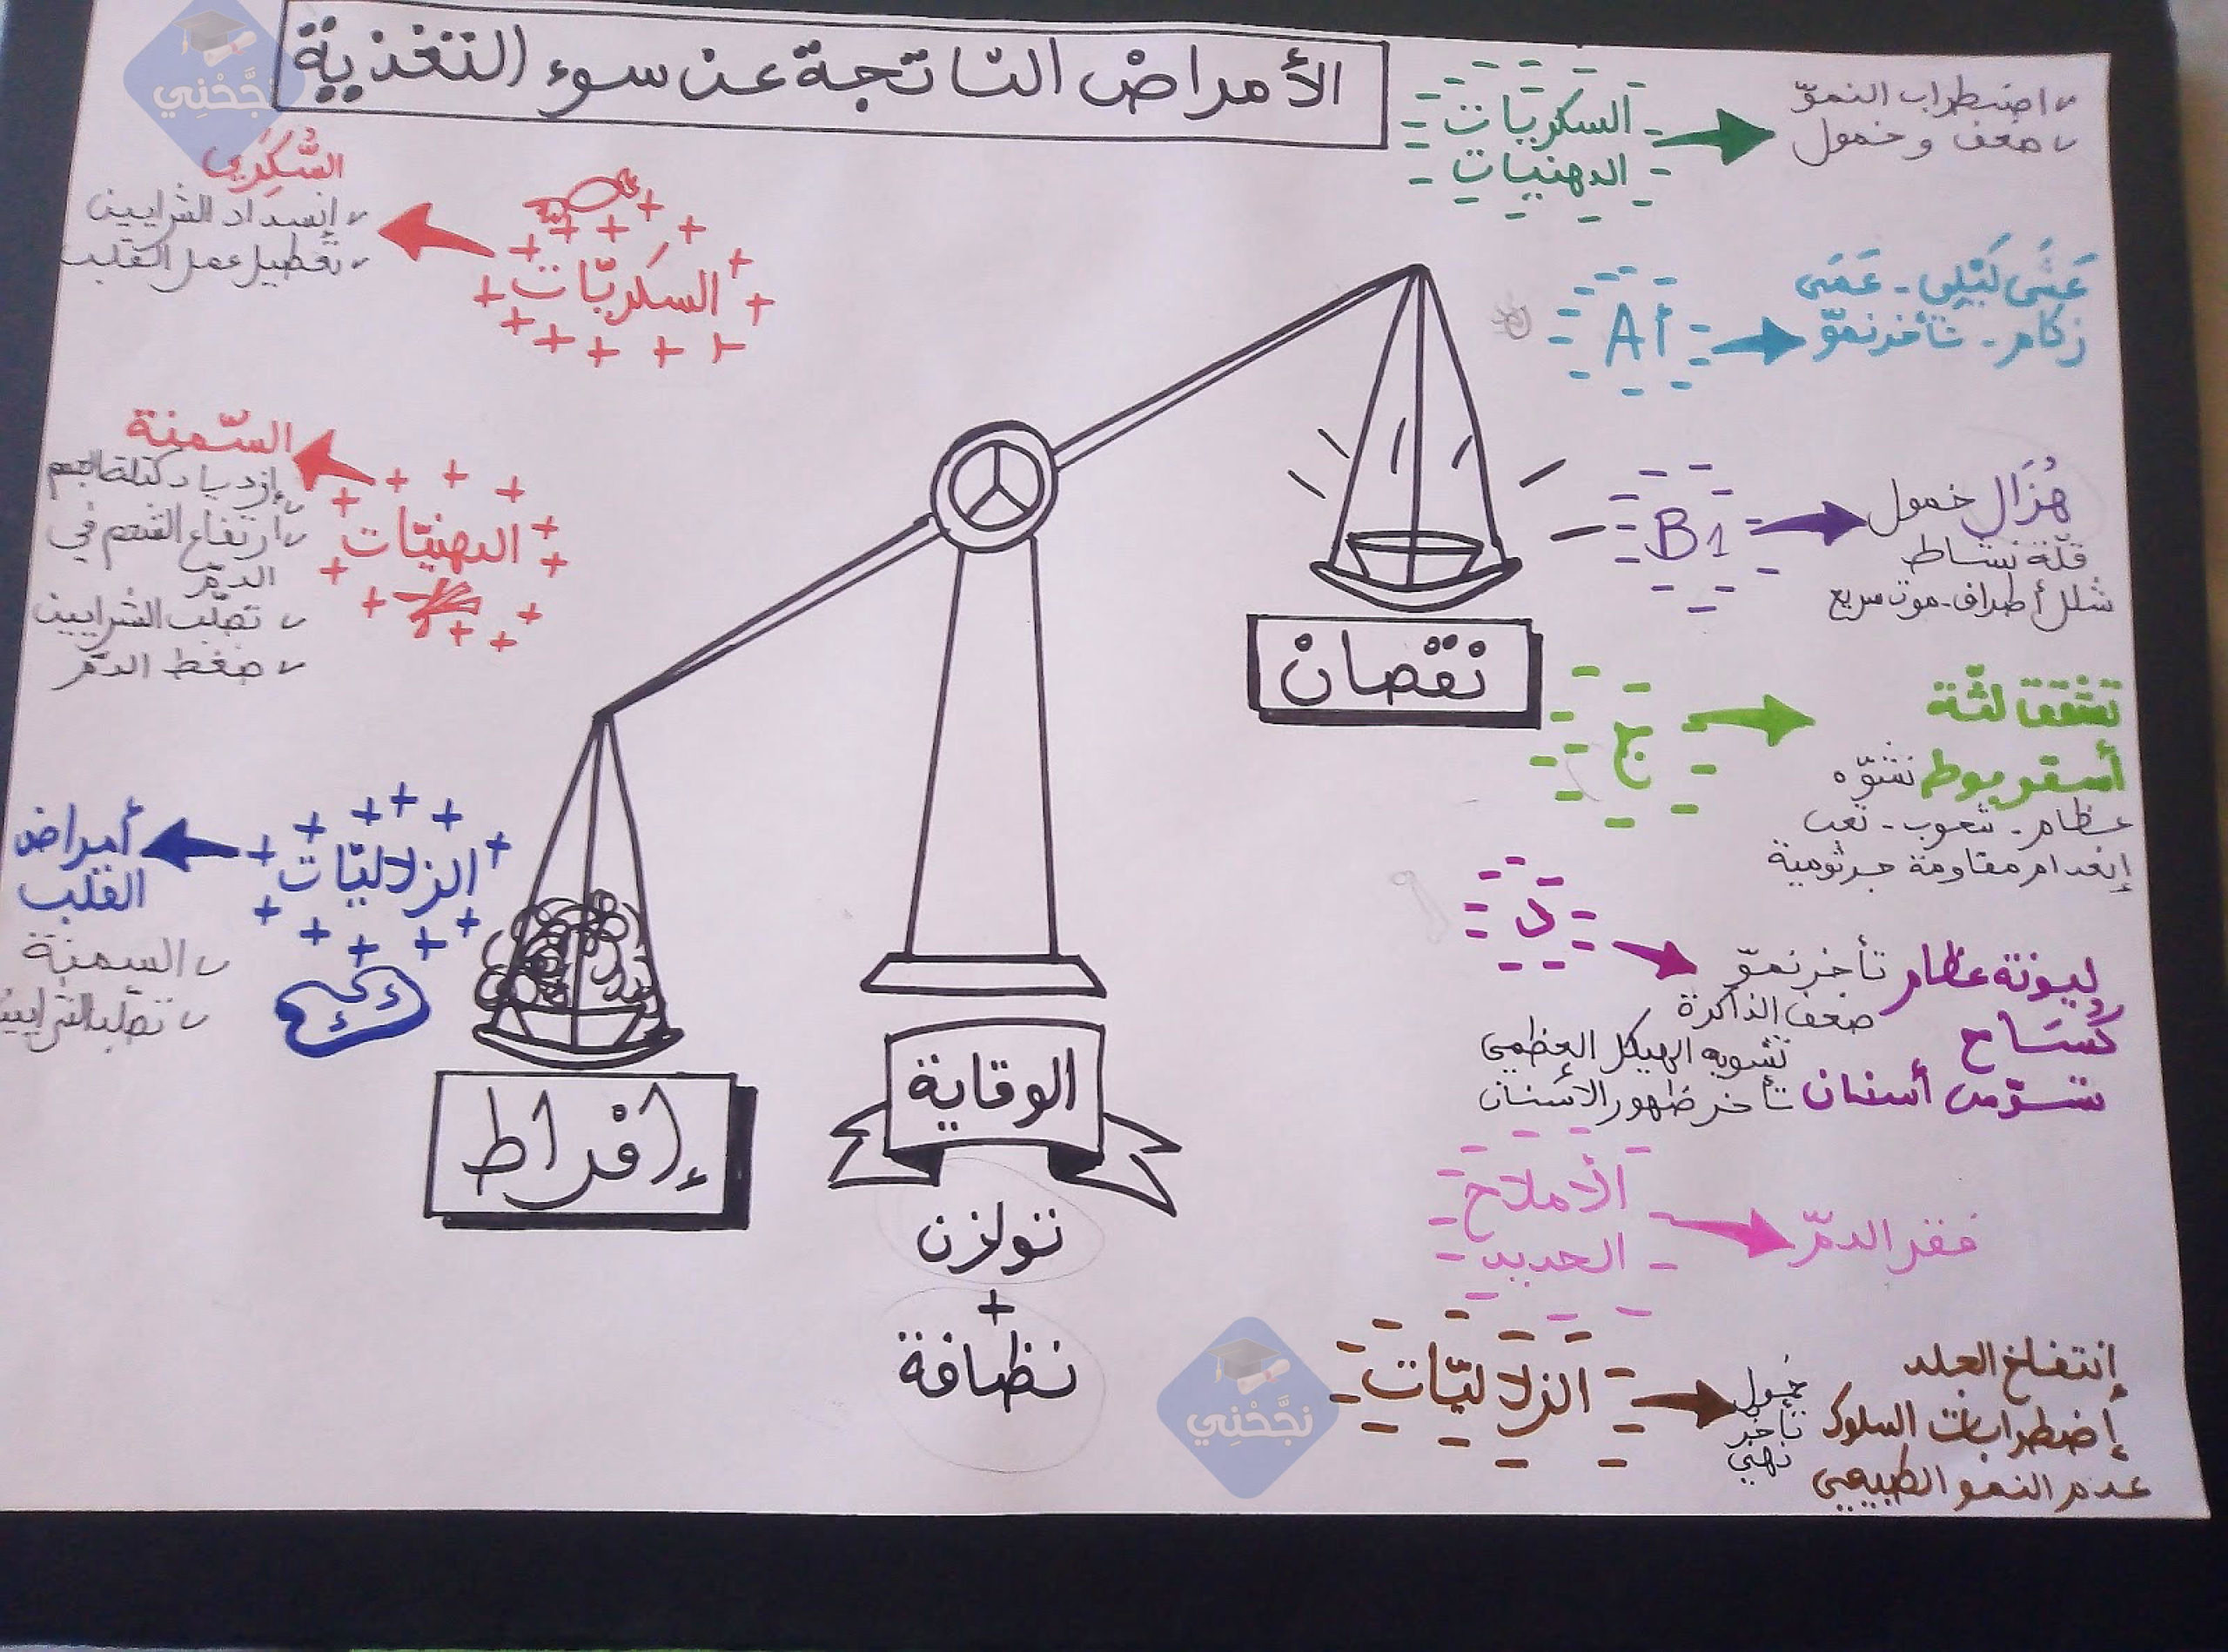 الأمراض الناتجة عن سوء التغذية
نجّحْني
السكريات
الدهنيات
اضطراب النموّ
ضعف و خمول
A أ
عَشَى لَيْلِي - عَمَى
زكام - تأخر نموّ
B1
هُزَال خمول
قلّة نشاط
شلل أطراف - موت سريع
ج
تشقق لثّة
أسقربوط تشوّه
عظام - شحوب - تعب
إنعدام مقاومة جرثومية
د
ليونة عظام تأخر نموّ
ضعف الذاكرة
كُسَاح
تشويه الهيكل العظمي
تسوّس أسنان تأخر ظهور الأسنان
الأملاح
الحديد
فقر الدمّ
الزلاليّات
إنتفاخ الجلد
إضطرابات السلوك
عدم النمو الطبيعي
خمول
تأخر
ذهني
نقصان
السكريّات
السُّكري
إنسداد الشرايين
تعطيل عمل القلب
الدهنيّات
السّمنة
إزدياد كتلة الجسم
ارتفاع الشحم في
الدمّ
تصلّب الشرايين
ضغط الدمّ
الزلاليّات
أمراض
القلب
السمنة
تصلّب الشرايين
إفراط
الوقاية
توازن
+
نظافة
نجّحْني